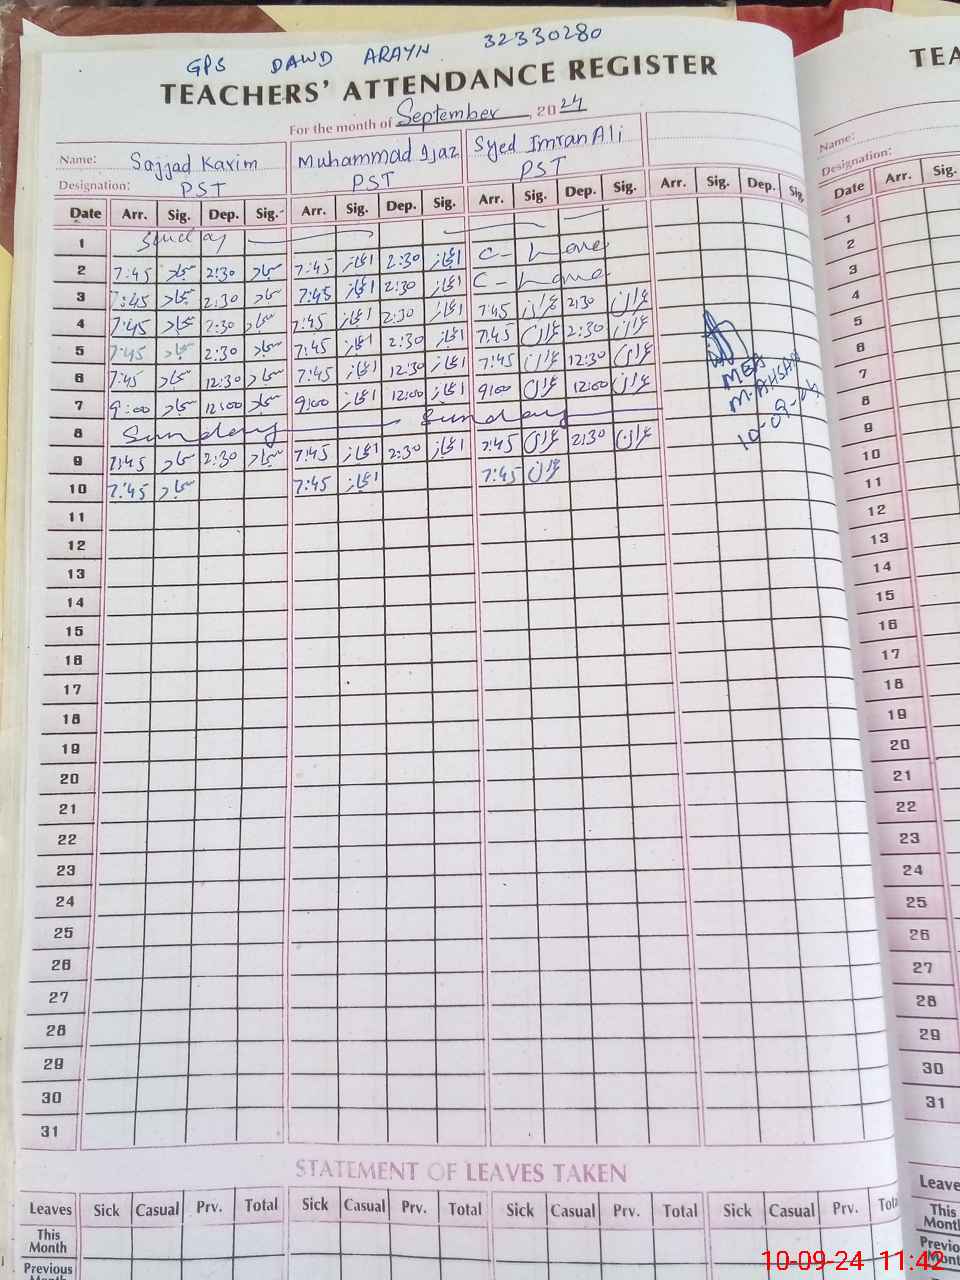 GPS DAWD ARAYN 32330280
TEACHERS' ATTENDANCE REGISTER
For the month of September, 2024
Name: Sajjad Karim Muhammad Ijaz Syed Imran Ali
Designation: PST PST PST
Date Arr. Sig. Dep. Sig. Arr. Sig. Dep. Sig. Arr. Sig. Dep. Sig. Arr. Sig. Dep. Sig.
1 Sunday
2 7:45 سجاد 2:30 سجاد 7:45 اعجاز 2:30 اعجاز C- Leave
3 7:45 سجاد 2:30 سجاد 7:45 اعجاز 2:30 اعجاز C- Leave
4 7:45 سجاد 2:30 سجاد 7:45 اعجاز 2:30 اعجاز 7:45 عمران 2:30 عمران
5 7:45 سجاد 2:30 سجاد 7:45 اعجاز 2:30 اعجاز 7:45 عمران 2:30 عمران
6 7:45 سجاد 12:30 سجاد 7:45 اعجاز 12:30 اعجاز 7:45 عمران 12:30 عمران
7 9:00 سجاد 12:00 سجاد 9:00 اعجاز 12:00 اعجاز 9:00 عمران 12:00 عمران
8 Sunday Sunday
9 7:45 سجاد 2:30 سجاد 7:45 اعجاز 2:30 اعجاز 7:45 عمران 2:30 عمران
10 7:45 سجاد 7:45 اعجاز 7:45 عمران
MEA
M. AHSAN
10-09-24
11
12
13
14
15
16
17
18
19
20
21
22
23
24
25
26
27
28
29
30
31
STATEMENT OF LEAVES TAKEN
Leaves Sick Casual Prv. Total Sick Casual Prv. Total Sick Casual Prv. Total Sick Casual Prv.
This Month
Previous
TEA
Name:
Designation:
Date Arr. Sig.
1
2
3
4
5
6
7
8
9
10
11
12
13
14
15
16
17
18
19
20
21
22
23
24
25
26
27
28
29
30
31
This
10-09-24 11:42